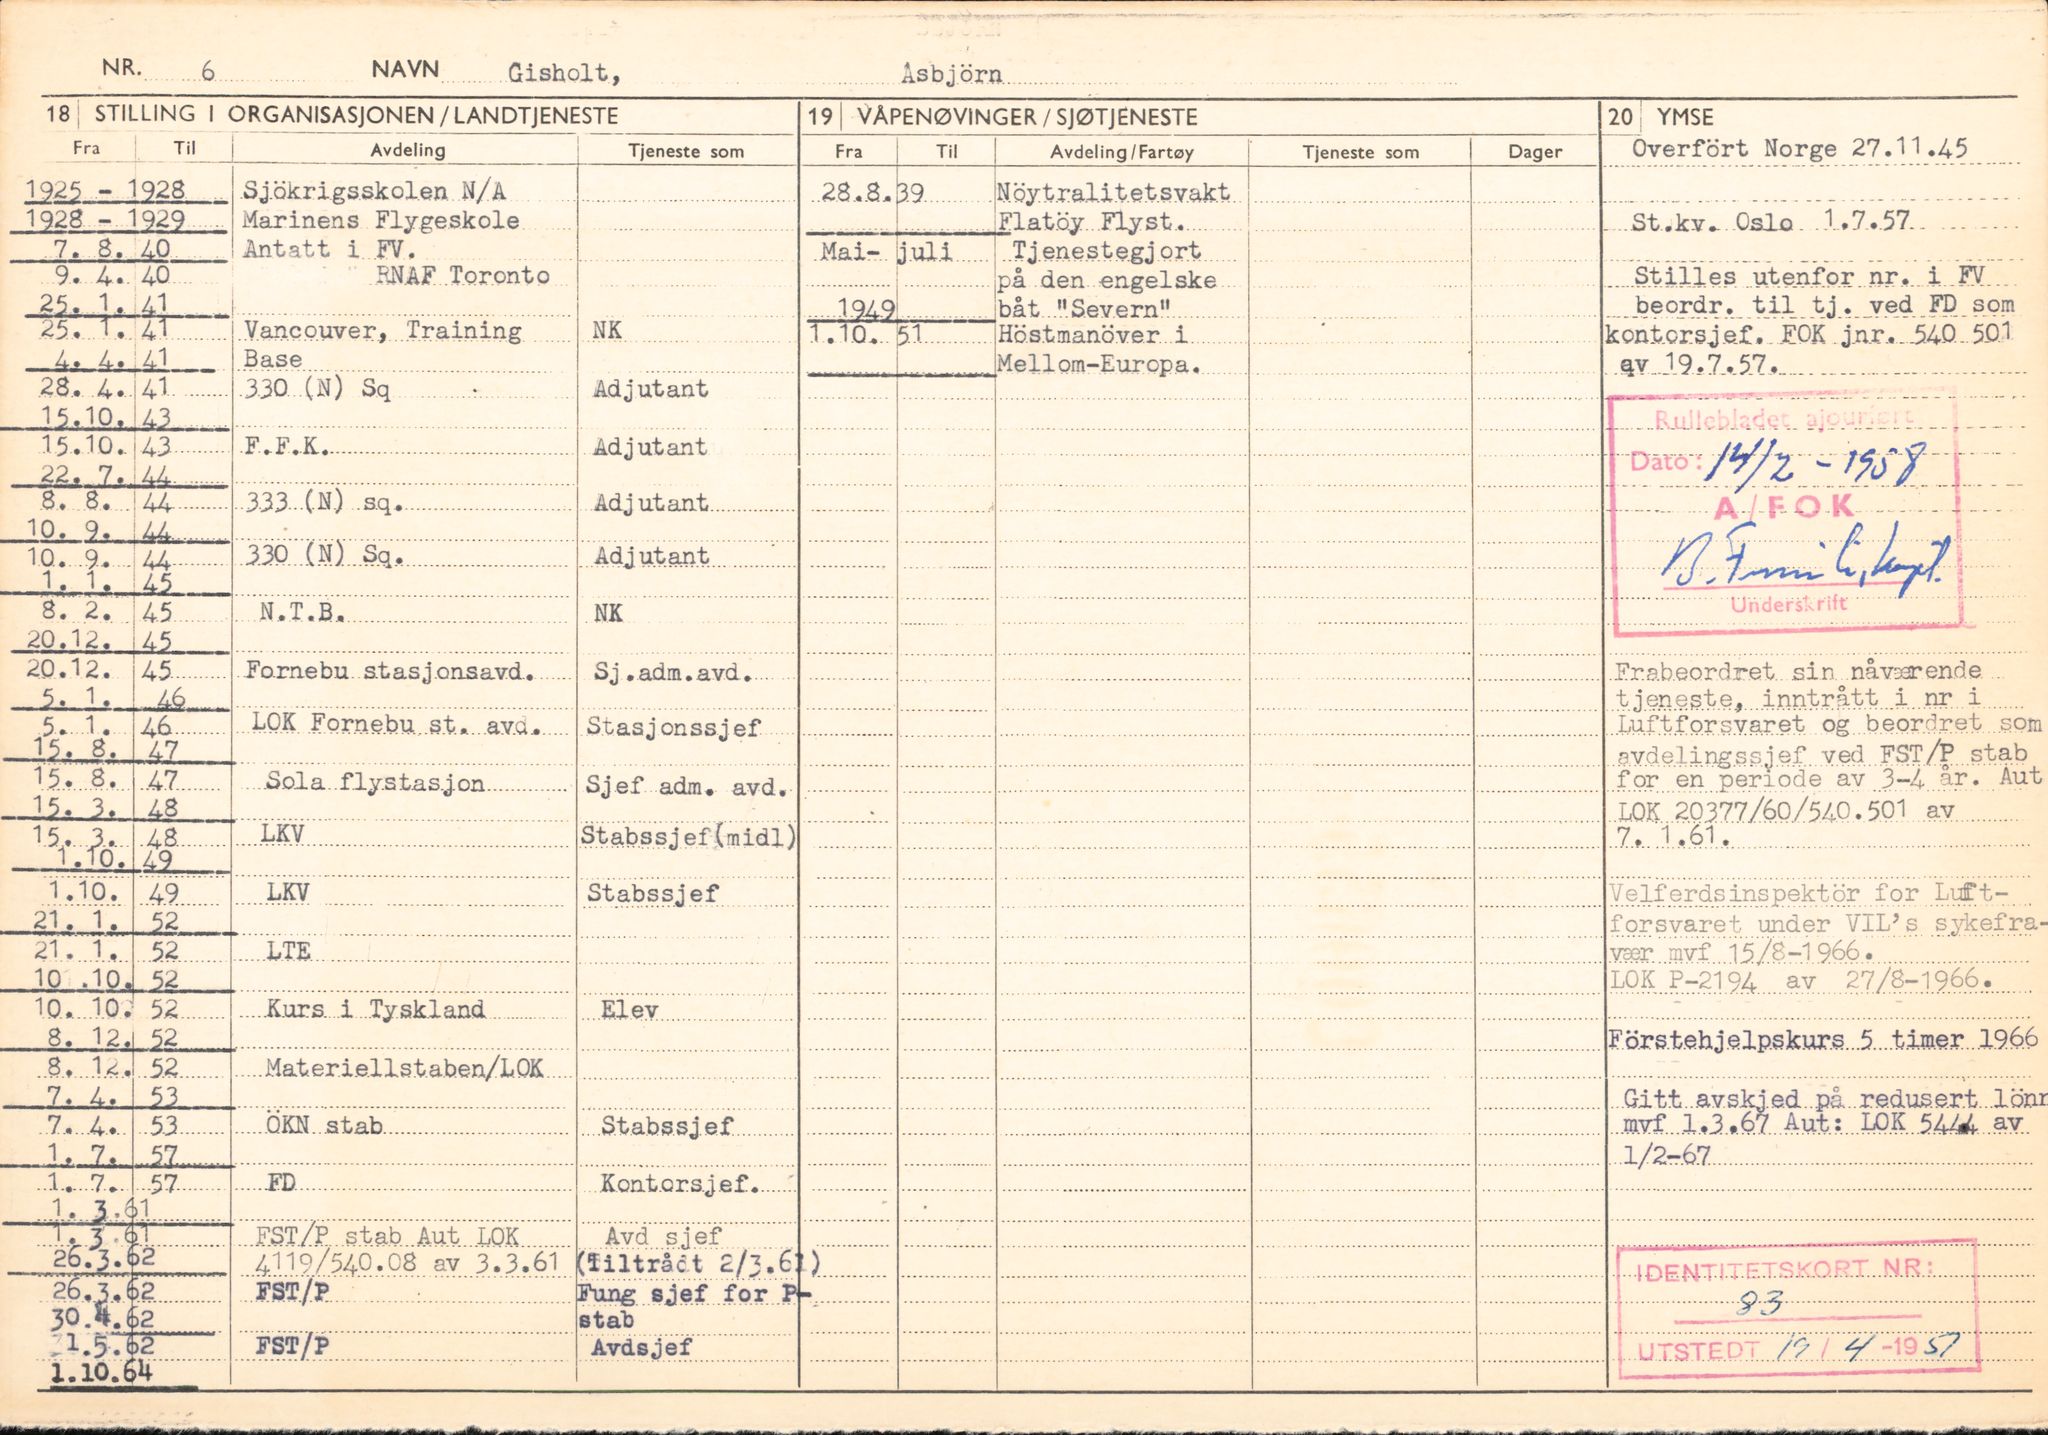 NR. 6 NAVN Gisholt, Asbjörn
18 STILLING I ORGANISASJONEN/LANDTJENESTE
Fra Til Avdeling Tjeneste som
1925 - 1928 Sjökrigsskolen N/A
1928 - 1929 Marinens Flygeskole
7. 8. 40 Antatt i FV.
9. 4. 40 RNAF Toronto
25. 1. 41
25. 1. 41 Vancouver, Training NK
4. 4. 41 Base
28. 4. 41 330 (N) Sq Adjutant
15.10. 43
15.10. 43 F.F.K. Adjutant
22. 7. 44
8. 8. 44 333 (N) sq. Adjutant
10. 9. 44
10. 9. 44 330 (N) Sq. Adjutant
1. 1. 45
8. 2. 45 N.T.B. NK
20.12. 45
20.12. 45 Fornebu stasjonsavd. Sj.adm.avd.
5. 1. 46
5. 1. 46 LOK Fornebu st. avd. Stasjonssjef
15. 8. 47
15. 8. 47 Sola flystasjon Sjef adm. avd.
15. 3. 48
15. 3. 48 LKV Stabssjef(midl)
1.10. 49
1.10. 49 LKV Stabssjef
21. 1. 52
21. 1. 52 LTE
10.10. 52
10. 10. 52 Kurs i Tyskland Elev
8. 12. 52
8. 12. 52 Materiellstaben/LOK
7. 4. 53
7. 4. 53 ÖKN stab Stabssjef
1. 7. 57
1. 7. 57 FD Kontorsjef.
1. 3.61
1. 3.61 FST/P stab Aut LOK Avd sjef
26.3.62 4119/540.08 av 3.3.61 (Tiltrådt 2/3.61)
26.3.62 FST/P Fung sjef for P-
30.4.62 stab
1.5.62 FST/P Avdsjef
1.10.64
19 VÅPENØVINGER/SJØTJENESTE
Fra Til Avdeling/Fartøy Tjeneste som Dager
28.8.39 Nöytralitetsvakt
Flatöy Flyst.
Mai- juli Tjenestegjort
på den engelske
1949 båt "Severn"
1.10. 51 Höstmanöver i
Mellom-Europa.
20 YMSE
Overfört Norge 27.11.45
St.kv. Oslo 1.7.57
Stilles utenfor nr. i FV
beordr. til tj. ved FD som
kontorsjef. FOK jnr. 540 501
av 19.7.57.
Rullebladet ajourført
Dato: 14/2 - 1958
A/FOK
Underskrift
Frabeordret sin nåværende
tjeneste, inntrått i nr i
Luftforsvaret og beordret som
avdelingssjef ved FST/P stab
for en periode av 3-4 år. Aut
LOK 20377/60/540.501 av
7. 1.61.
Velferdsinspektör for Luft-
forsvaret under VIL's sykefra-
vær mvf 15/8-1966.
LOK P-2194 av 27/8-1966.
Förstehjelpskurs 5 timer 1966
Gitt avskjed på redusert lönn
mvf 1.3.67 Aut: LOK 5444 av
1/2-67
IDENTITETSKORT NR:
83
UTSTEDT 19 / 4 -1957